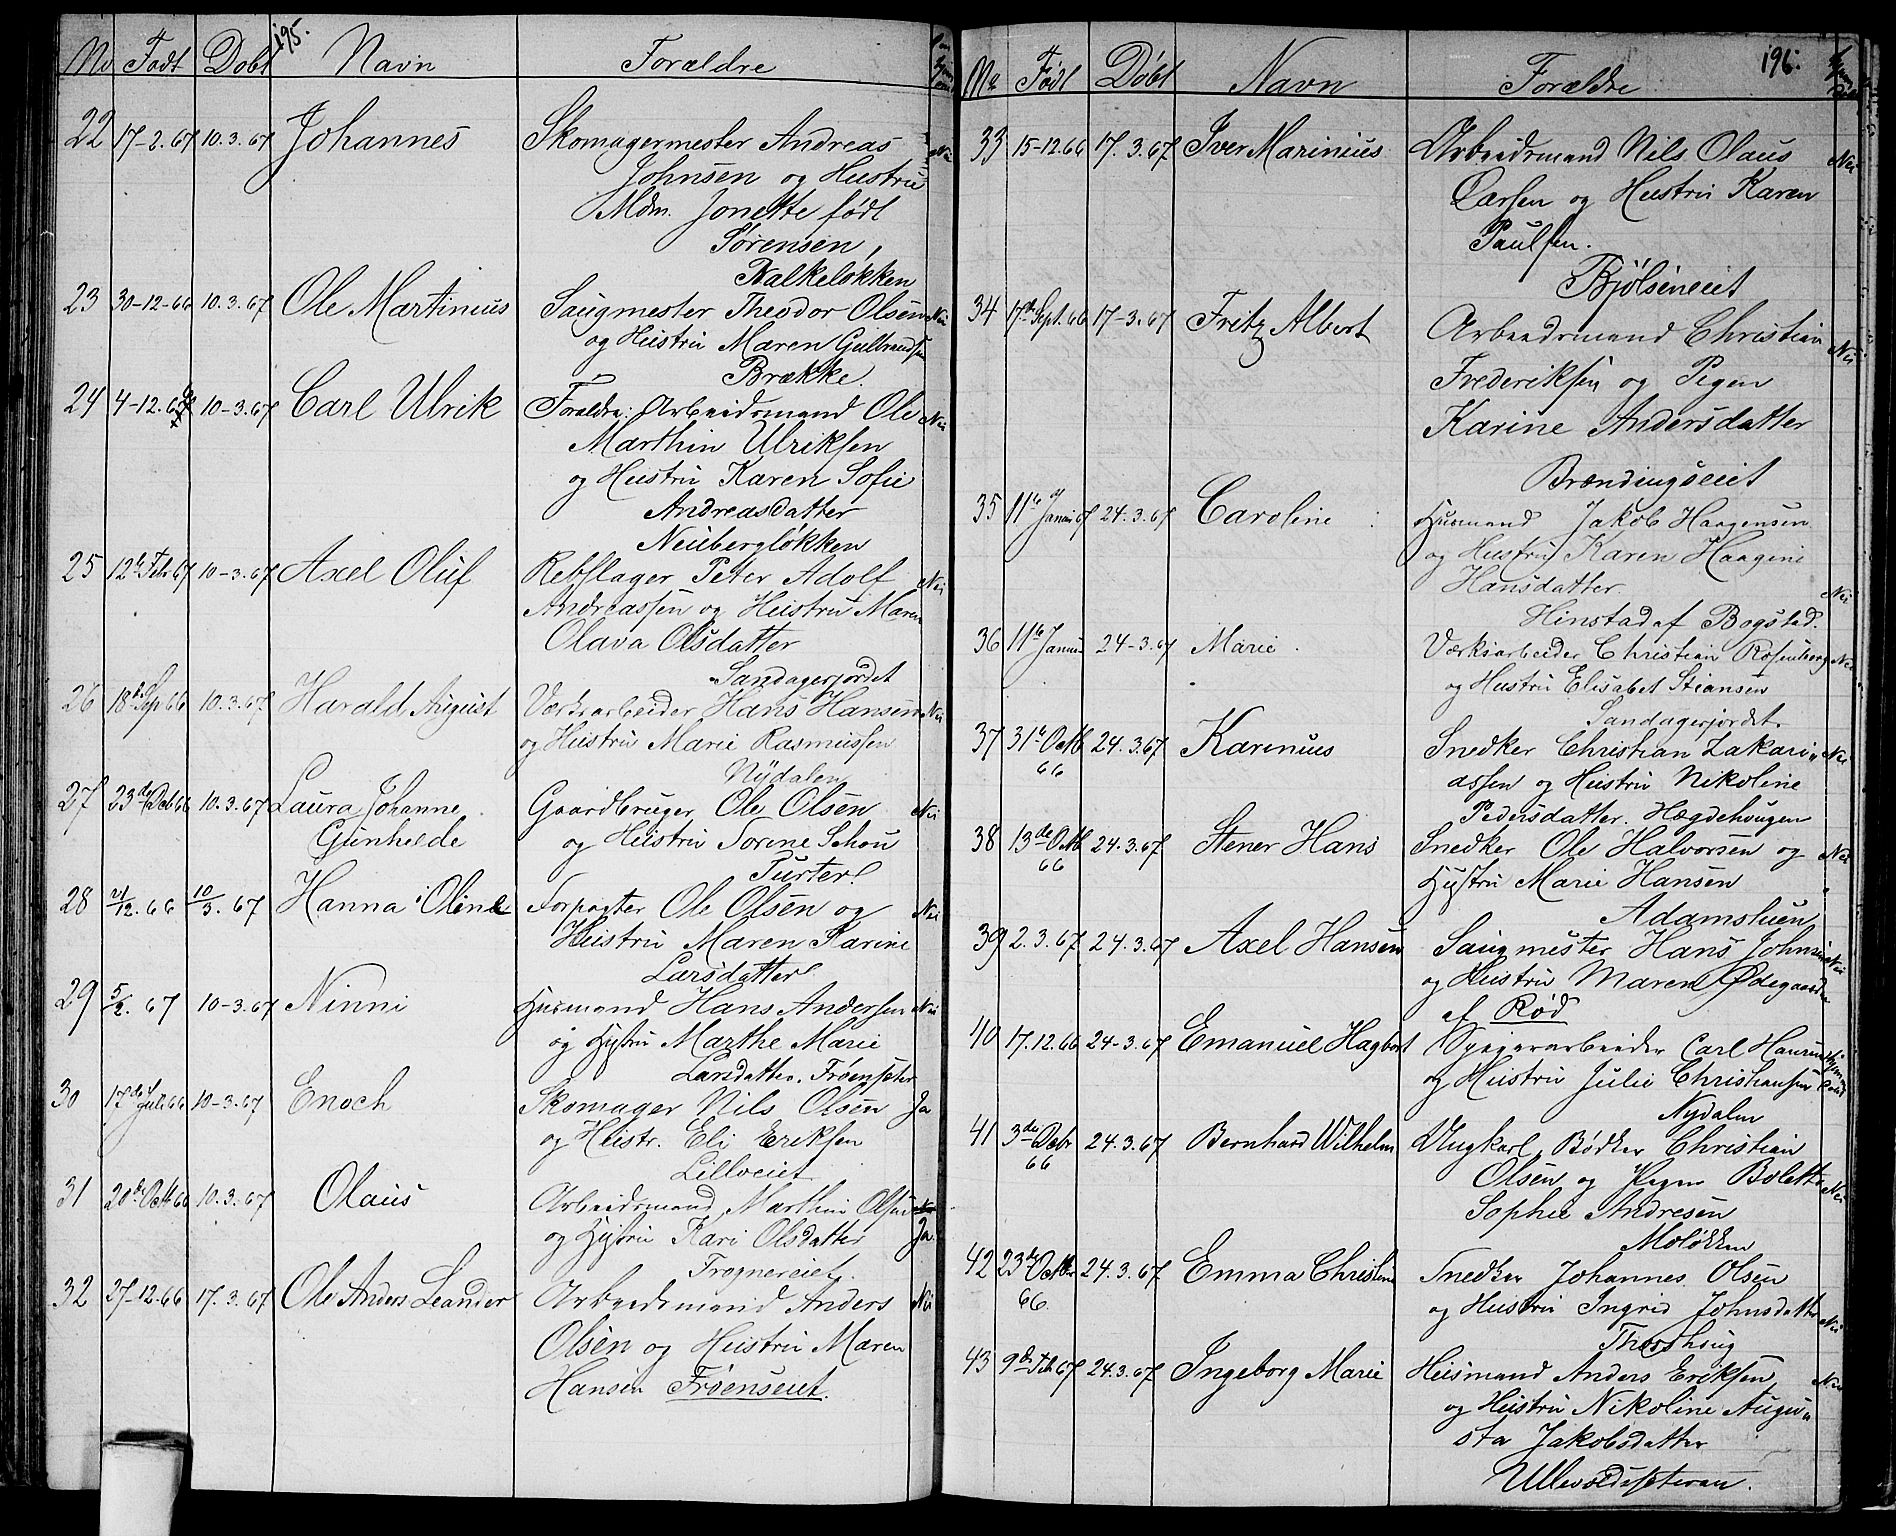 195.
No Født Døbt Navn Forældre
22 17-2.67 10.3.67 Johannes Skomagermester Andreas
Johnsen og Hustru Nei
Mdm. Jonette født
Sørensen,
Balkeløkken
23 30-12-66 10.3.67 Ole Martinius Saugmester Theodor Olsen Nei
og Hustru Maren Gulbrandsen
Brække.
24 4-12.65 10-3.67 Carl Ulrik Forældre: Arbeidsmand Ole Nei
Marthin Ulriksen
og Hustru Karen Sofie
Andreasdatter
Neubergløkken
25 12te Febr 67 10-3.67 Axel Oluf Rebslager Peter Adolf Nei
Andreassen og Hustru Maren
Olava Olsdatter
Sandagerjordet
26 18de Sep 66 10.3.67 Harald August Værksarbeider Hans Hansen Nei
og Hustru Marie Rasmussen
Nydalen
27 23de Deb 66 10.3.67 Laura Johanne Gaardbruger Ole Olsen Nei
Gunhilde og Hustru Sorine Schou
Turter
28 21/12.66 10/3.67 Hanna Oline Forpagter Ole Olsen og Nei
Hustru Maren Karine
Larsdatter
29 5/2.67 10-3.67 Ninni Husmand Hans Andersen Nei
og Hustru Marthe Marie
Larsdatter. Frøensæter
30 17de Juli 66 10-3.67 Enoch Skomager Nils Olsen Ja
og Hustr. Eli Eriksen
Lilloeiet
31 20de Octb 66 10.3.67 Olaus Arbeidsmand Marthin Olsen Nei
og Hustru Kari Olsdatter Ja
Frognereiet.
32 27-12.66 17.3.67 Ole Anders Leander Arbeidsmand Anders Nei
Olsen og Hustru Maren
Hansen Frøenseiet.
196.
No Født Døbt Navn Forældre
33 15-12.66 17.3.67 Iver Marinius Arbeidsmand Nils Olaus Nei
Larsen og Hustru Karen
Paulsen.
Bjølseneiet
34 17de Sept. 66 17-3.67 Fritz Albert Arbeidsmand Christian Nei
Frederiksen og Pigen
Karine Andersdatter
Brændingseiet
35 11te Januar 67 24.3.67 Caroline Husmand Jakob Haagensen
og Hustru Karen Haagine
Hansdatter. Nei
Hinstad af Bogstad.
36 11te Januar 24-3.67 Marie. Værksarbeider Christian Rosenborg Nei
og Hustru Elisabet Stiansen
Sandagerjordet.
37 31te Octb 24.3.67 Karinius Snedker Christian Zakari- Nei
66 assen og Hustru Nikoline
Pedersdatter. Hægdehougen
38 13de Octb 24.3.67 Stener Hans Snedker Ole Halvorsen og Nei
66 Hustru Marie Hansen
Adamstuen
39 2.3.67 24.3.67 Axel Hansen Saugmester Hans Johnsen Nei
og Hustru Maren Ødegaarden
af Rød
40 17.12.66 24-3.67 Emanuel Hagbart Carl Hansen
og Hustru Julie Christiansen
Nydalen
41 3de Debr 24.3.67 Bernhard Wilhelm Ungkarl Bødker Christian
66 Olsen og Pigen Bolette Nei
Sophie Andresen
Moløkken
42 23de Octbr 24.3.67 Emma Christine Snedker Johannes Olsen
66. og Hustru Ingrid Johnsdatter Nei
Thorshaug
43 9de Feb 67 24.3.67 Ingeborg Marie Husmand Anders Eriksen Nei
og Hustru Nikoline Augu-
sta Jakobsdatter
Ullevoldsæteren.